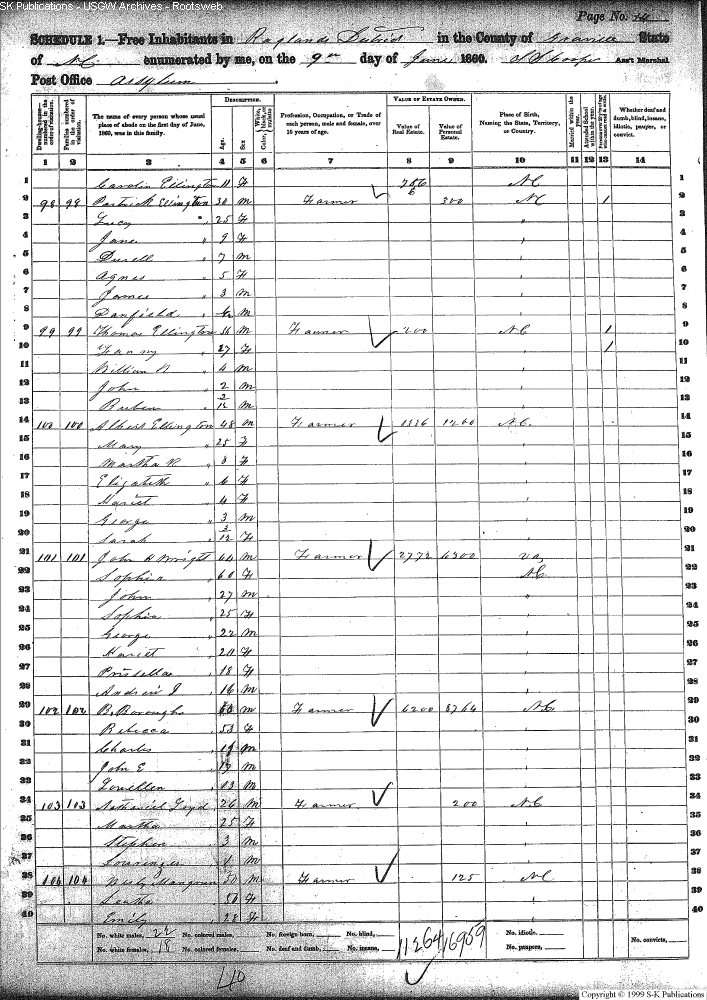 SK Publications - USGW Archives - Rootsweb
Page No.
SCHEDULE 1.—Free Inhabitants in Raglands District in the County of Granville State
of N.C. enumerated by me, on the 9th day of June 1860. Ass't Marshal
Post Office Assylum
Dwelling-houses— numbered in the order of visitation.
Families numbered in the order of visitation.
The name of every person whose usual place of abode on the first day of June, 1860, was in this family.
DESCRIPTION.
Age. Sex. Color, White, black, or mulatto.
Profession, Occupation, or Trade of each person, male and female, over 15 years of age.
VALUE OF ESTATE OWNED.
Value of Real Estate. Value of Personal Estate.
Place of Birth, Naming the State, Territory, or Country.
Married within the year.
Attended School within the year.
Whether deaf and dumb, blind, insane, idiotic, pauper, or convict.
1 2 3 4 5 6 7 8 9 10 11 12 13 14
1 Carolin Ellington 11 F NC 1
2 98 98 Ellington 30 m Farmer 300 NC / 2
3 Lucy " 25 F " 3
4 Jane " 9 F " 4
5 " 7 m " 5
6 Agnes " 5 F " 6
7 James " 3 m " 7
8 Danfield " m " 8
9 99 99 Thomas Ellington 36 m Farmer 200 NC / 9
10 Fanny " 27 F " / 10
11 William " 4 m " 11
12 John " 2 m " 12
13 Ruben " 2/12 m " 13
14 100 100 Albert Ellington 48 m Farmer 1336 1260 NC. 14
15 Mary " 25 F " 15
16 Martha R. " 8 F " 16
17 Elizabeth " 6 F " 17
18 Hariet " 4 F " 18
19 George " 3 m " 19
20 Sarah " 3/12 F " 20
21 101 101 John Wright 64 m Farmer 2772 6300 Va, 21
22 Sophia " 60 F NC 22
23 John " 27 m " 23
24 Sophia " 25 F " 24
25 George " 22 m " 25
26 Hariet " 20 F " 26
27 Prissella " 18 F " 27
28 Andrew J " 16 m " 28
29 102 102 B. Boroughs 60 m Farmer 6200 8764 NC 29
30 Rebecca " 53 F " 30
31 Charles " 19 m " 31
32 John E " m " 32
33 Lewellen " 13 m " 33
34 103 103 Nathaniel 26 m Farmer 200 NC 34
35 Martha " 25 F " 35
36 Stephen " 3 m " 36
37 " 1 m " 37
38 104 104 Mangum 50 m Farmer 125 NC 38
39 Leatha " 50 F " 39
40 Emily " 28 F " 40
No. white males, 22 No. colored males, No. foreign born, No. blind, 11264 16959 No. idiotic, No. convicts,
No. white females, 18 No. colored females, No. deaf and dumb, No. insane, No. paupers,
40
Copyright © 1999 S-K Publications